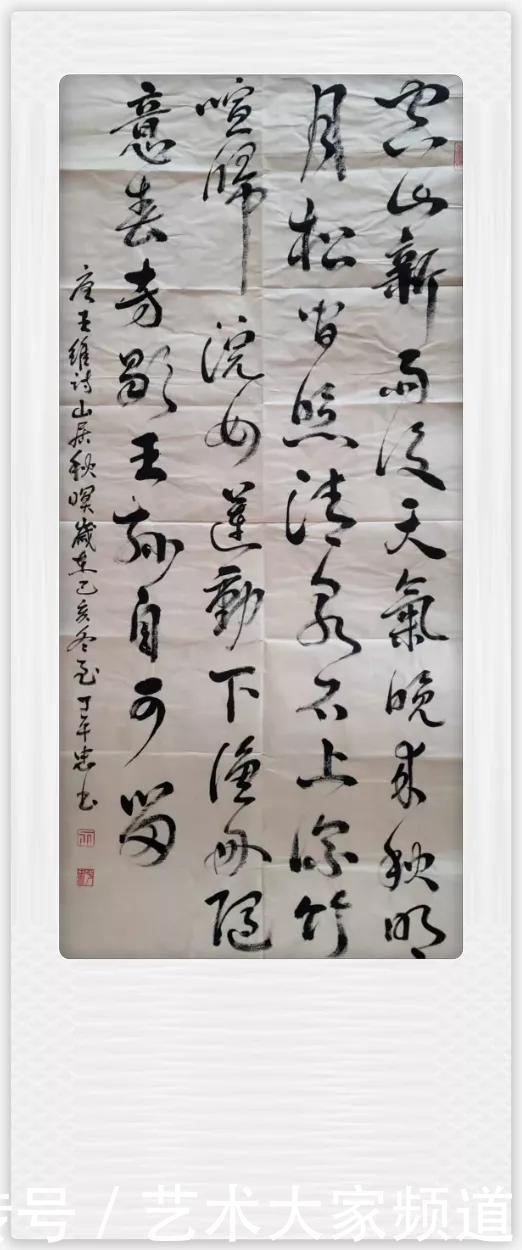 空山新雨後天氣晚來秋明
月松間照清泉石上流竹
喧歸浣女蓮動下漁舟隨
意春芳歇王孫自可留
唐王維詩山居秋暝歲在己亥冬至丁平忠書
号 / 艺术大家频道